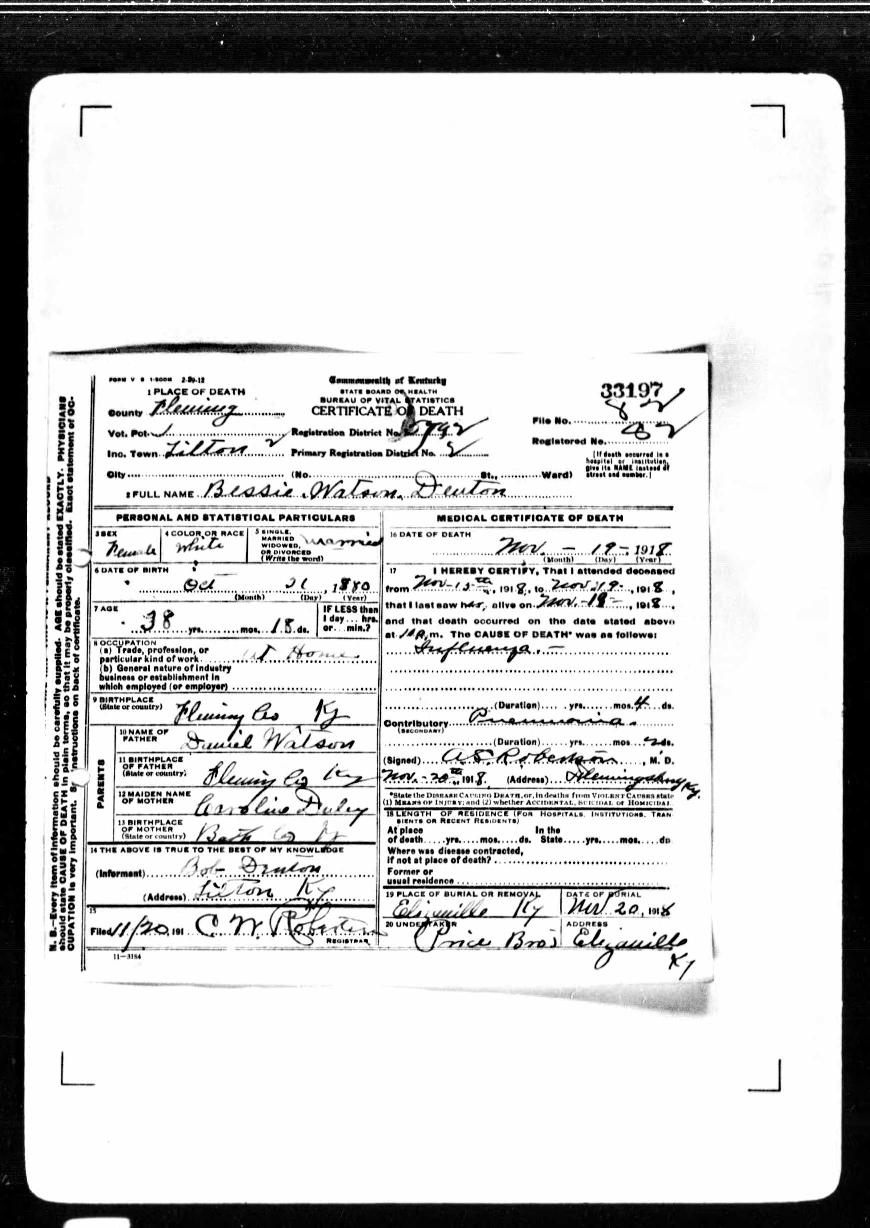 FORM V S 1-500M 2-29-12
Commonwealth of Kentucky
STATE BOARD OF HEALTH
BUREAU OF VITAL STATISTICS
CERTIFICATE OF DEATH
33197
1 PLACE OF DEATH
County Fleming
Vot. Pct. 1
Inc. Town Tilton 2
City (No. St., Ward)
Registration District No.
Primary Registration District No. 2
File No. 82
Registered No. 82
[If death occurred in a hospital or institution, give its NAME instead of street and number.]
2 FULL NAME Bessie Watson Denton
PERSONAL AND STATISTICAL PARTICULARS
3 SEX Female
4 COLOR OR RACE White
5 SINGLE, MARRIED WIDOWED, OR DIVORCED (Write the word) Married
6 DATE OF BIRTH
Oct 21, 1880
(Month) (Day) (Year)
7 AGE
38 yrs. mos. 18 ds.
IF LESS than 1 day... hrs. or... min.?
8 OCCUPATION
(a) Trade, profession, or particular kind of work At Home
(b) General nature of industry
business or establishment in
which employed (or employer)
9 BIRTHPLACE
(State or country) Fleming Co Ky
PARENTS
10 NAME OF FATHER Daniel Watson
11 BIRTHPLACE OF FATHER (State or country) Fleming Co Ky
12 MAIDEN NAME OF MOTHER Caroline
13 BIRTHPLACE OF MOTHER (State or country) Bath Co Ky
14 THE ABOVE IS TRUE TO THE BEST OF MY KNOWLEDGE
(Informant) Bob Denton
(Address) Tilton Ky
15
Filed 11/20, 191 C. W.
REGISTRAR
11-3184
MEDICAL CERTIFICATE OF DEATH
16 DATE OF DEATH
Nov. - 19 - 1918
(Month) (Day) (Year)
17 I HEREBY CERTIFY, That I attended deceased
from Nov - 15th, 1918, to Nov. 19 -, 1918,
that I last saw her alive on Nov. - 19 -, 1918,
and that death occurred on the date stated above
at m. The CAUSE OF DEATH* was as follows:
Influenza. -
(Duration) yrs. mos. 4 ds.
Contributory Pneumonia.
(SECONDARY)
(Duration) yrs. mos. 2 ds.
(Signed) Robertson, M. D.
Nov. - 20th, 1918. (Address) Flemingsburg Ky.
*State the DISEASE CAUSING DEATH, or, in deaths from VIOLENT CAUSES state
(1) MEANS OF INJURY; and (2) whether ACCIDENTAL, SUICIDAL or HOMICIDAL.
18 LENGTH OF RESIDENCE (FOR HOSPITALS, INSTITUTIONS, TRANSIENTS OR RECENT RESIDENTS)
At place of death yrs. mos. ds. In the State yrs. mos. ds
Where was disease contracted,
if not at place of death?
Former or
usual residence
19 PLACE OF BURIAL OR REMOVAL
Elizaville Ky
DATE OF BURIAL
Nov. 20, 1918
20 UNDERTAKER
Price Bros
ADDRESS
Elizaville Ky
N. B.—Every item of information should be carefully supplied. AGE should be stated EXACTLY. PHYSICIANS
should state CAUSE OF DEATH in plain terms, so that it may be properly classified. Exact statement of OC-
CUPATION is very important. instructions on back of certificate.